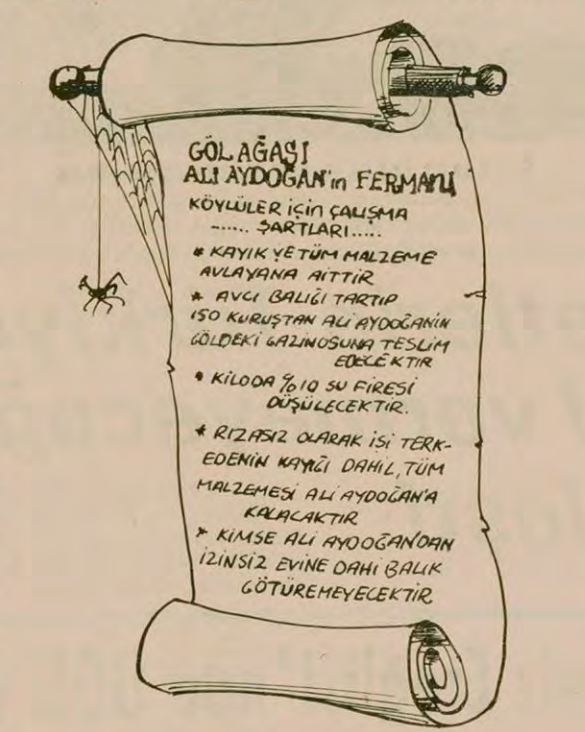 GÖL AĞASI
ALİ AYDOĞAN'ın FERMANI
KÖYLÜLER için ÇALIŞMA
...... ŞARTLARI.....
* KAYIK VE TÜM MALZEME
AVLAYANA AİTTİR
* AVCI BALIĞI TARTIP
150 KURUŞTAN ALİ AYDOĞANIN
GÖLDEKİ GAZİNOSUNA TESLİM
EDECEKTİR
* KİLODA %10 SU FİRESİ
DÜŞÜLECEKTİR.
* RIZASIZ OLARAK İŞİ TERK-
EDENİN KAYIĞI DAHİL, TÜM
MALZEMESİ ALİ AYDOĞAN'A
KALACAKTIR
* KİMSE ALİ AYDOĞAN'DAN
İZİNSİZ EVİNE DAHİ BALIK
GÖTÜREMEYECEKTİR